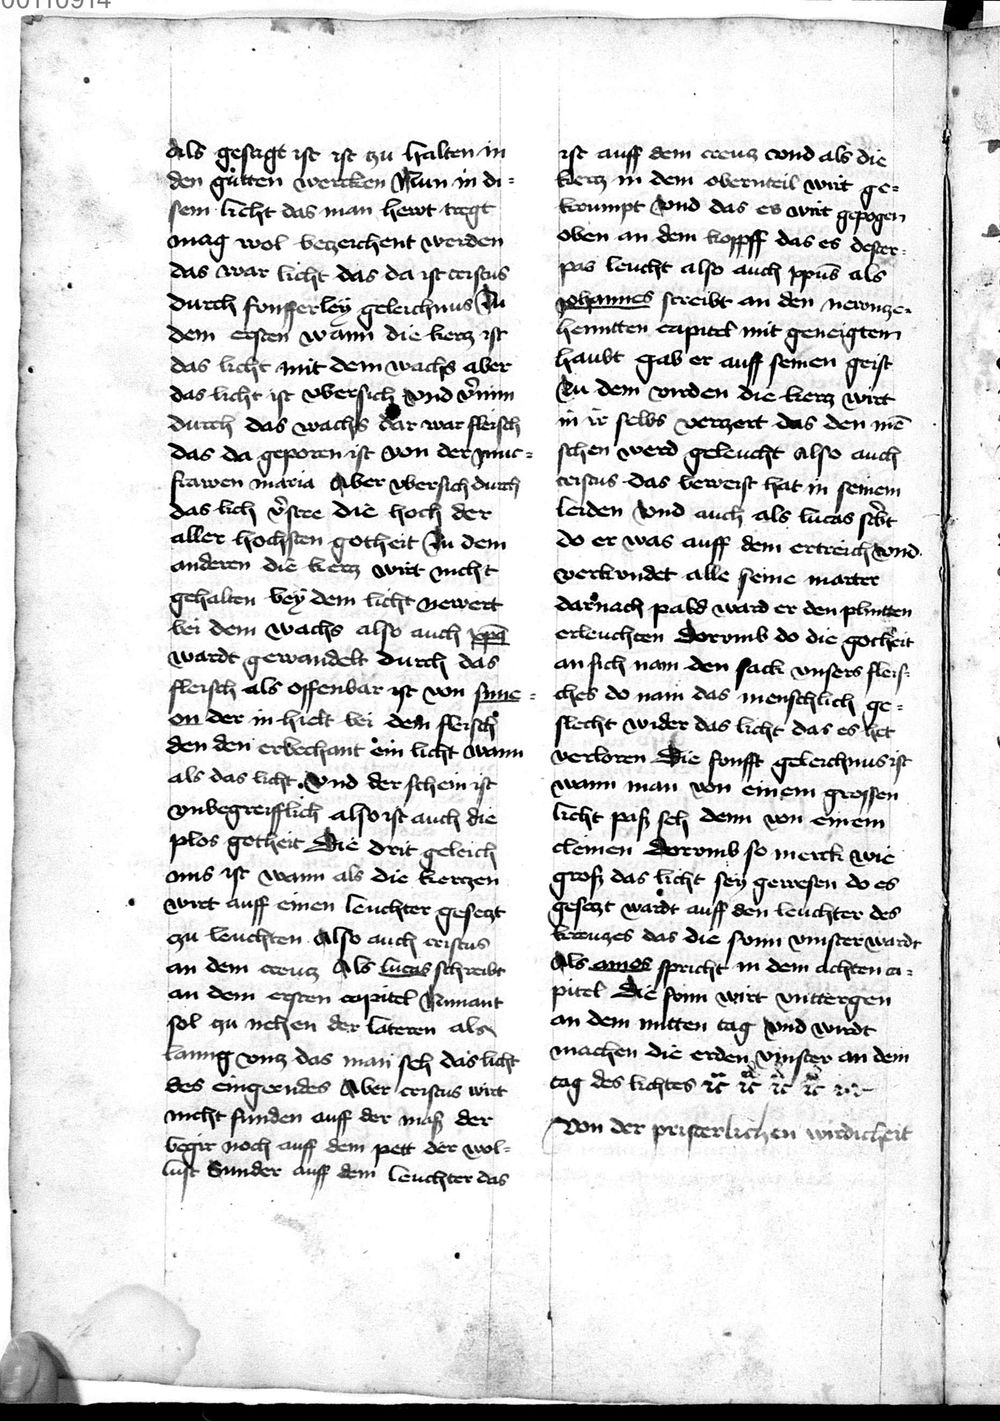 00110914
als gesagt ist ist zu halten in
den gůtten wercken Nun in di-
sem licht das man hewt tregt
mag wol bezeichent werden
das war licht das da ist cristus
durch fonfferley geleichnus Zu
dem ersten wann die kercz ist
das licht mit dem wachs aber
das licht ist vbersich vnd v̂nim
durch das wachs dar war fleisch
das da geporen ist von der junc-
frawen maria Aber vbersich durch
das lich v̂stee die hoch der
aller hochsten gotheit Zu dem
anderen die kercz wirt nicht
gehalten bey dem licht newert
bei dem wachs also auch xpūs
wardt gewandelt durch das
fleisch als offenbar ist von sime-
on der in hielt bei dem fleisch
den den erbechant ein licht wann
als das licht vnd der schein ist
vnbegreifflich also ist auch die
plos gotheit Die drit geleich
nus ist wann als die kerczen
wirt auff einen leuchter geseczt
zu leuchten Also auch cristus
an dem creucz Als lucas schreibt
an dem ersten capitel Nimant
sol zu nehen der lateren als
lanng vncz das man seh das licht
des eingeendes Aber cristus wirt
nicht funden auff der maß der
begir noch auff dem pett der wol-
lust Sunder auff dem leuchter das
ist auff dem creucz vnd als die
kercz in dem obernteil wirt ge-
krumpt vnd das es wirt gepogen
oben an dem kopff das es dester-
pas leucht also auch xpūs als
johannes screibt an den newnze-
henntten capitel mit geneigtem
haubt gab er auff seinen geist
Zu dem virden die kercz wirt
in ir selbs verzert das den mē
schen werd geleucht Also auch
cristus das beweist hat in seinem
leiden Vnd auch als lucas scbt
do er was auff dem ertreich vnd
verkundet alle seine marter
darnach pald ward er den plintten
erleuchten Dorvmb do die gotheit
an sich nam den sack vnsers fleis-
ches do nam das menschlich ge-
slecht wider das licht das es het
verloren Die fonfft geleichnus ist
wann man von einem grossen
licht paß seh denn von einem
cleinen Dorvmb so merck wie
groß das licht sey gewesen do es
geseczt wardt auff den leuchter des
kreuczes das die sonn vinster wardt
Als amos spricht in dem achten ca-
pitel Die sonn wirt vnttergen
an dem mitten tag vnd wirdt
machen die erden vinster an dem
tag des lichtes
Von der pristerlichen wirdicheit